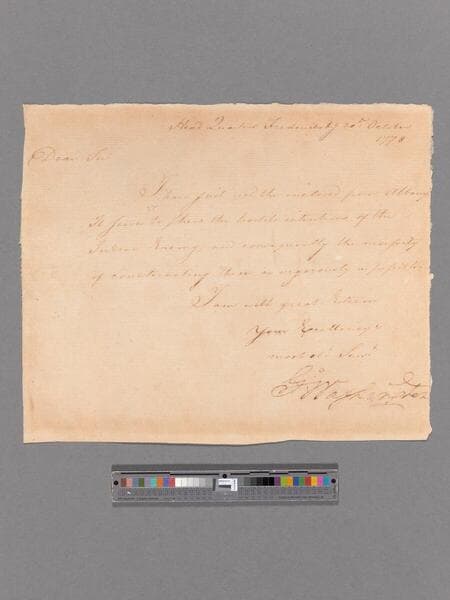 Head Quarters Fredericksbg 20th October
1778
Dear Sir
I have just recd the inclosed from Albany
It serves to shew the hostile intentions of the
Indian Enemy and consequently the necessity
of counteracting them as vigorously as possible
I am with great Esteem
Your Excellency's
most obt Servt
Go Washington